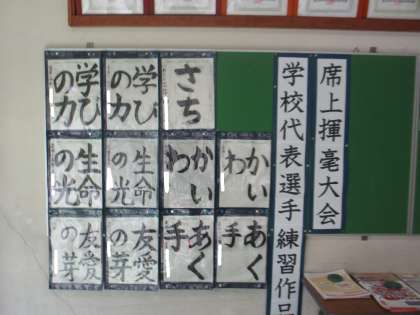 席上揮毫大会
学校代表選手練習作品
さち
学び
の力
学び
の力
かい
わ
かい
わ
生命
の光
生命
の光
あく
手
あく
手
友愛
の芽
友愛
の芽